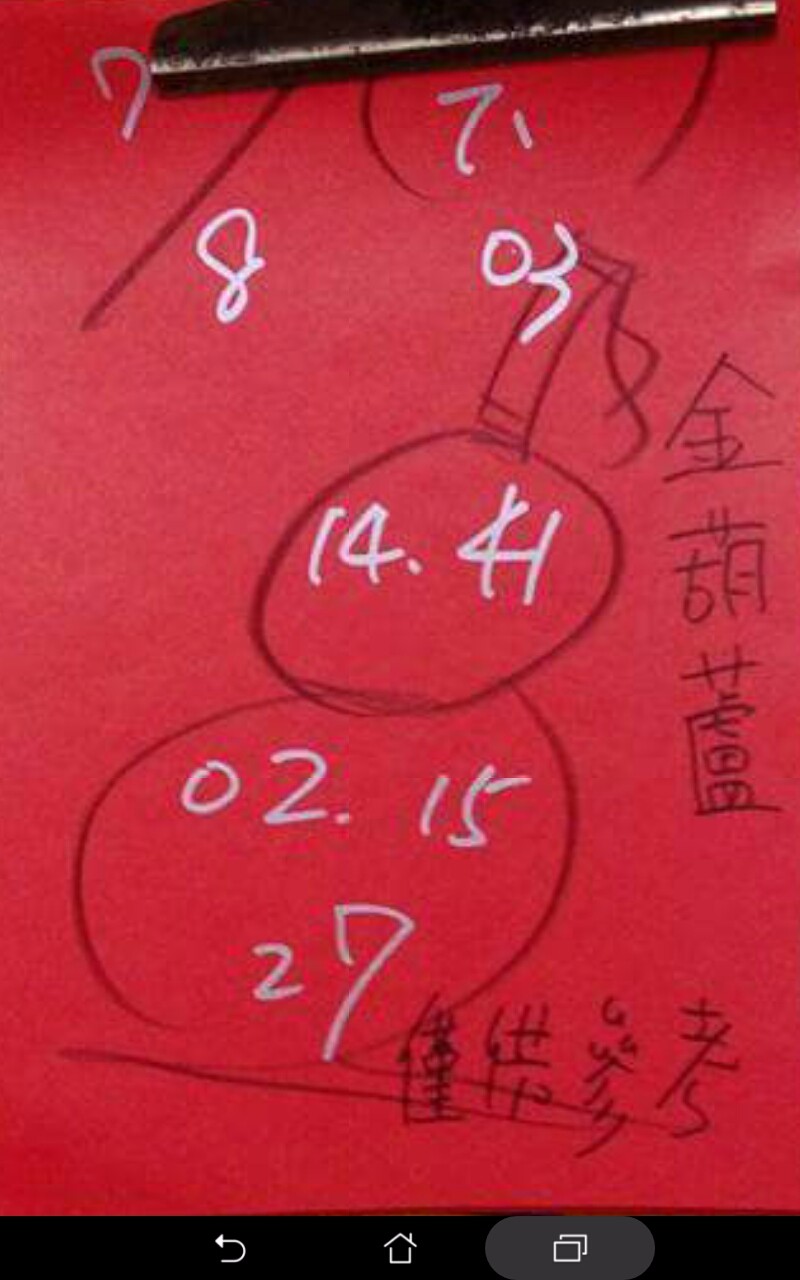 7
7、
8
03
14. 41
02. 15
27
金葫蘆
僅供參考